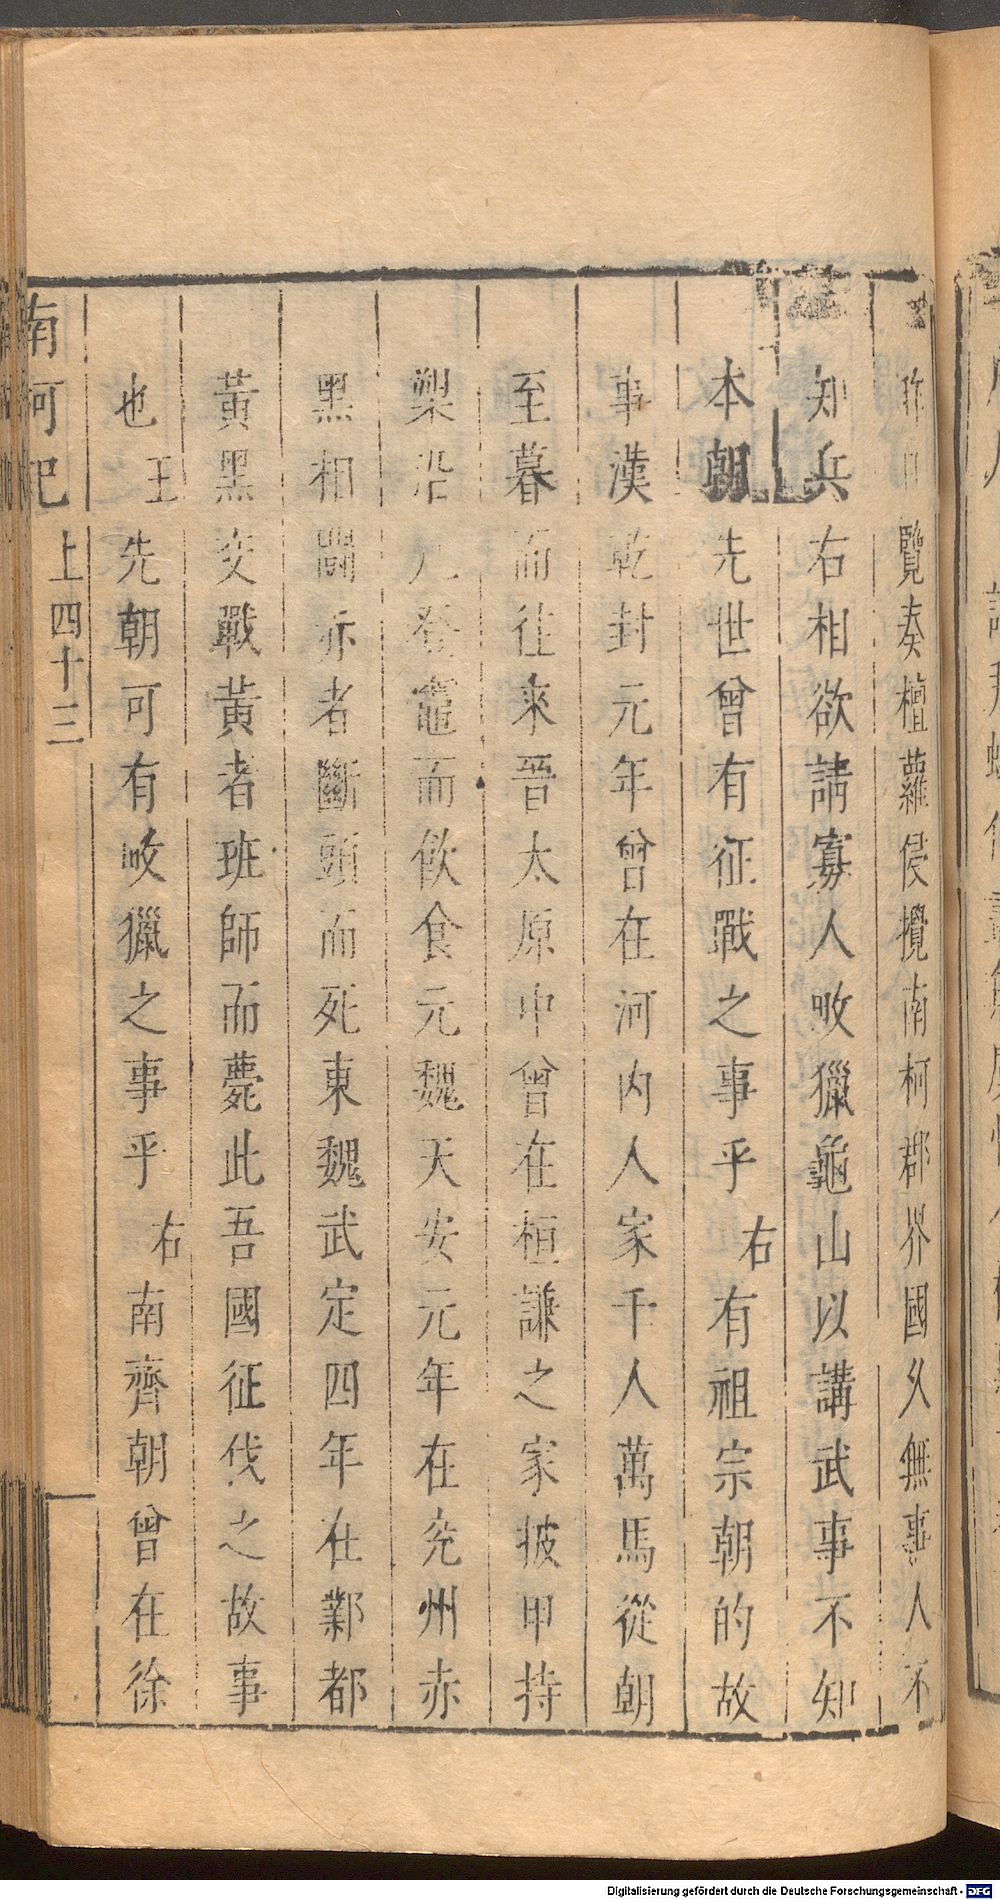 昨日覽奏檀蘿侵攪南柯郡界國久無事人不
知兵右相欲請寡人畋獵龜山以講武事不知
本朝先世曾有征戰之事乎 右有祖宗朝的故
事漢乾封元年曾在河內人家千人萬馬從朝
至暮而往來晉太原中曾在桓謙之家披甲持
槊沿几登竈而飲食元魏天安元年在兖州赤
黑相鬬赤者斷頭而死東魏武定四年在鄴都
黃黑交戰黃者班師而薨此吾國征伐之故事
也 王先朝可有畋獵之事乎 右南齊朝曾在徐
南柯記 上四十三
Digitalisierung gefördert durch die Deutsche Forschungsgemeinschaft - DFG